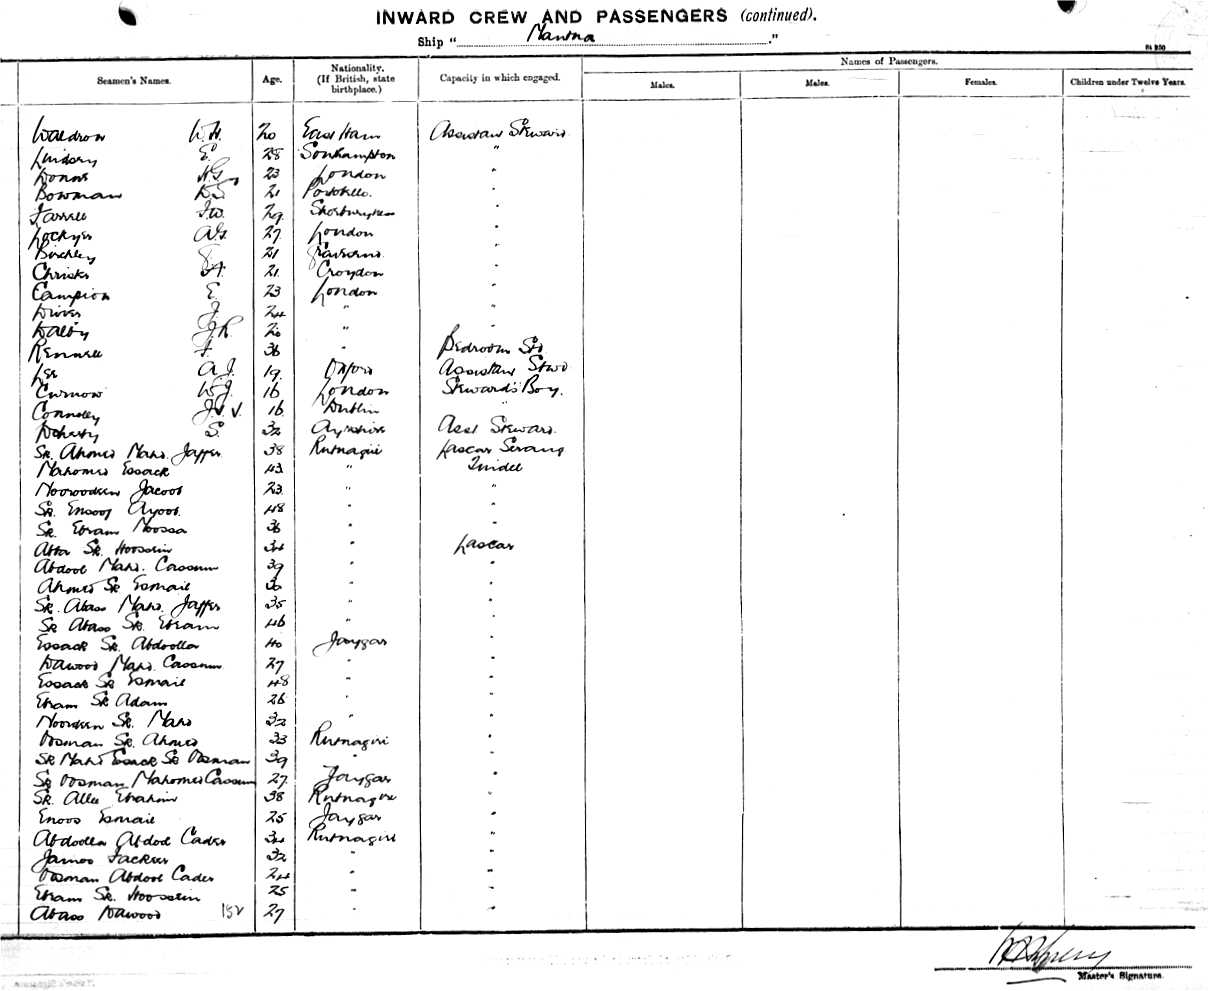 INWARD CREW AND PASSENGERS (continued).
Ship "Mantua."
Seamen's Names. Age. Nationality. (If British, state birthplace.) Capacity in which engaged. Names of Passengers.
Males. Males. Females. Children under Twelve Years.
Waldron W.H. 20 East Ham Assistant Steward
Lindsey E. 28 Southampton "
23 London "
Bowman 21 Portobello. "
Farrell J.W. 29 "
Lockyer A.G. 27 London "
Birchley 21 "
Christie 21 Croydon "
Campion E. 23 London "
Driver J. 24 " "
Dalby J.R. 20 " "
Rennell F. 36 " Bedroom Std
Lee A.J. 19 Oxford Assistant Stwd
Curnow W.J. 16 London Steward's Boy.
Connolly J.V. 16 Dublin
Doherty S. 32 Ayrshire Asst Steward.
Sk. Ahmed Mahd. Jaffer 38 Rutnagiri Lascar Serang
Mahomed Essack 43 " Tindel
Noorodeen Jacoob 23 " "
Sk. Ensoof Ayoob. 48 " "
Sk. Ebram Moossa 36 " "
Abba Sk. Hoossein 34 " Lascar
Abdool Mahd. Cassum 39 " "
Ahmed Sk Esmail 36 " "
Sk. Abass Mahd. Jaffer 35 " "
Sk Abass Sk. Ebram 46 " "
Essack Sk. Abdoolla 40 Jaygar "
Dawood Mahd. Cassum 27 " "
Essack Sk Esmail 48 " "
Ebram Sk Adam 26 " "
Noordeen Sk. Mahd 32 " "
Oosman Sk. Ahmed 33 Rutnagiri "
Sk Mahd Essack Sk Oosman 39 " "
Sk Oosman Mahomed Cassum 27 Jaygar "
Sk. Allee Ebrahim 38 Rutnagiri "
Enoos Esmail 25 Jaygar "
Abdoolla Abdol Cader 34 Rutnagiri "
James Fackeer 32 " "
Oosman Abdool Cader 24 " "
Ebram Sk. Hoossein 25 " "
Abass Dawood 152 27 " "
Master's Signature.